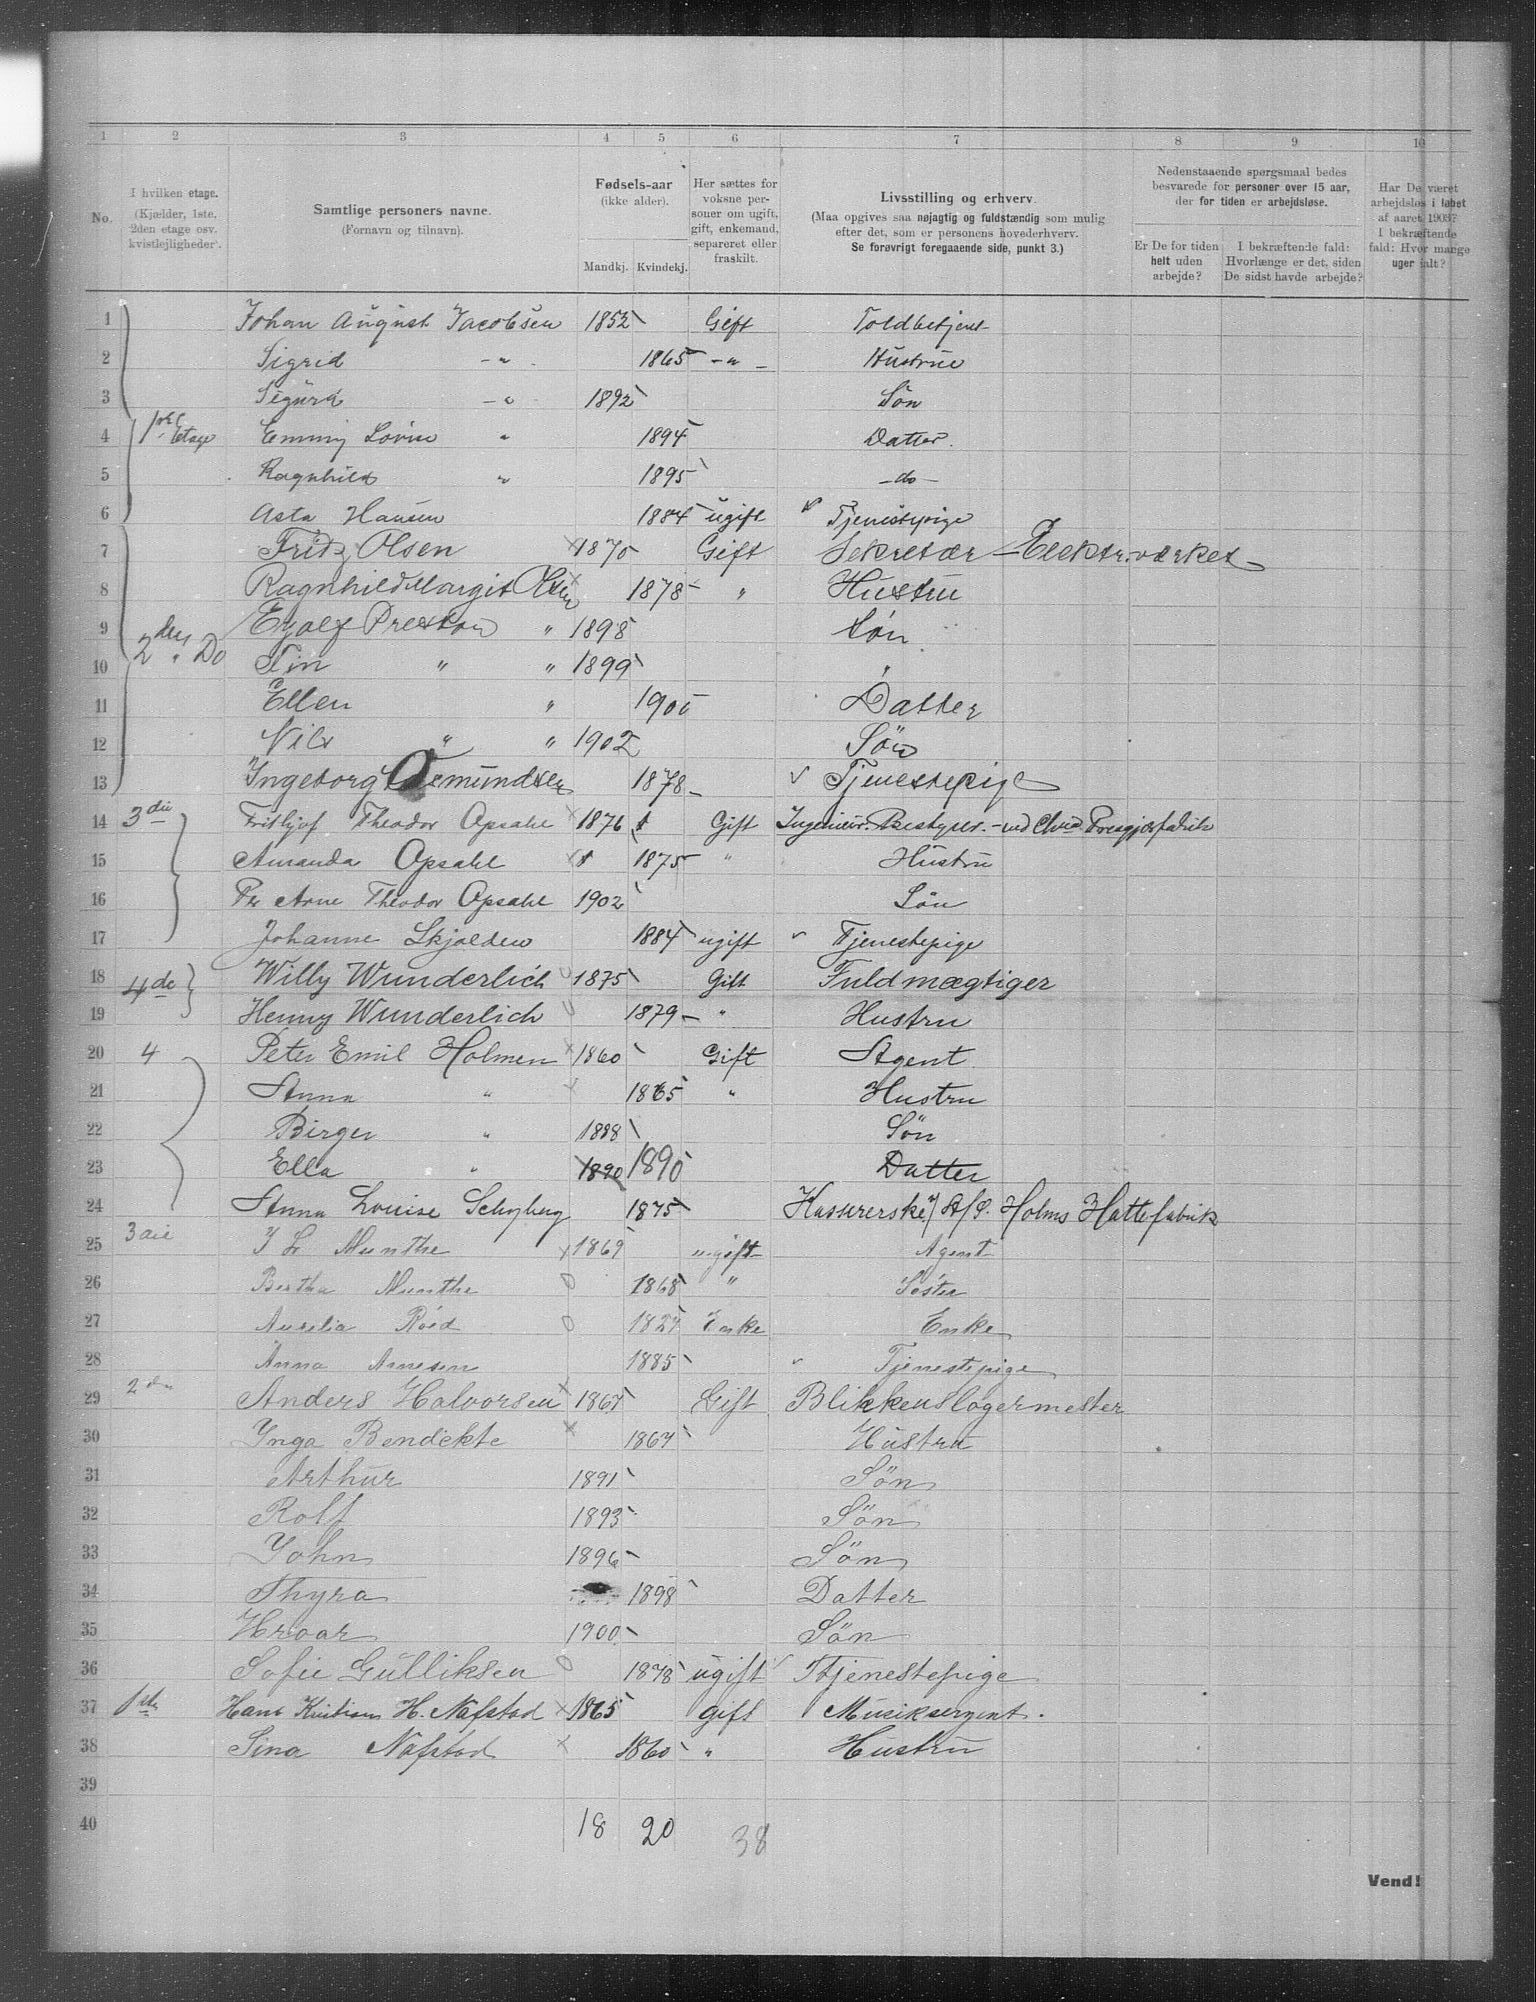 1 2 3 4 5 6 7 8 9 10
No. I hvilken etage. (Kjælder, 1ste, 2den etage osv. kvistlejligheder). Samtlige personers navne. (Fornavn og tilnavn). Fødsels-aar (ikke alder). Mandkj. Kvindekj. Her sættes for voksne personer om ugift, gift, enkemand, separeret eller fraskilt. Livsstilling og erhverv. (Maa opgives saa nøjagtig og fuldstændig som mulig efter det, som er personens hovederhverv. Se forøvrigt foregaaende side, punkt 3.) Nedenstaaende spørgsmaal bedes besvarede for personer over 15 aar, der for tiden er arbejdsløse. Er De for tiden helt uden arbejde? I bekræftende fald: Hvorlænge er det, siden De sidst havde arbejde? Har De været arbejdsløs i løbet af aaret 1903? I bekræftende fald: Hvor mange uger ialt?
1 Johan August Jacobsen 1852 Gift Toldbetjent
2 Sigrid -"- 1865 -"- Hustrue
3 Sigurd -"- 1892 Søn
4 1ste Etage Emmy Lovise " 1894 Datter.
5 Ragnhild " 1895 -do-
6 Asta Hansen 1884 ugift Tjenestepige
7 Fritz Olsen 1870 Gift Sekretær - Elektr.værket
8 Ragnhild Margit Olsen 1878 " Hustru
9 2den " Do Eyolf Preston " 1898 Søn
10 Fin " " 1899 "
11 Ellen " 1900 Datter
12 Nils " " 1902 Søn
13 Ingeborg Osmundsen 1878 Tjenestepige
14 3die Fritjof Theodor Opsahl 1876 Gift Ingeniør. Bestyrer. - ved Chra
15 Amanda Opsahl 1875 " Hustru
16 Per Arne Theodor Opsahl 1902 Søn
17 Johanne Skjolden 1884 ugift Tjenestepige
18 4de Willy Wunderlich 1875 Gift Fuldmægtiger
19 Henny Wunderlich 1879 " Hustru
20 4 Peter Emil Holmen 1860 Gift Agent
21 Anna " 1865 " Hustru
22 Birger " 1888 Søn
23 Ella " 1890 1890 Datter
24 Anna Louise Schyberg 1875 Kassererske v/ A/S. Holms Hattefabrik
25 3die J L Munthe 1869 ugift Agent
26 Bertha Munthe 1868 " Søster
27 Aurelia Röed 1827 Enke Enke
28 Anna Arnesen 1885 Tjenestepige
29 2den Anders Halvorsen 1867 Gift Blikkenslagermester
30 Ynga Bendikte 1867 Hustru
31 Arthur 1891 Søn
32 Rolf 1893 Søn
33 John 1896 Søn
34 Thyra 1898 Datter
35 Hroar 1900 Søn
36 Sofie Gulliksen 1878 ugift Tjenestepige
37 1ste Hans Kristian H. Nafstad 1865 gift Musiksergent.
38 Sina Nafstad 1860 " Hustru
39
40 18 20 38
Vend!